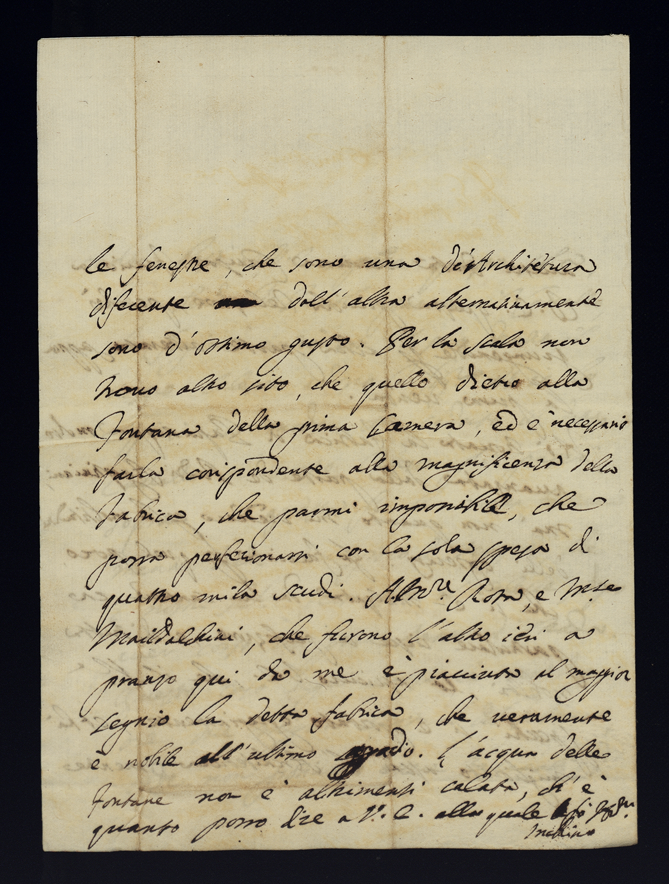 le fenestre, che sono una di Architettura
diferente dall'altra alternativamente
sono d'ottimo gusto. Per la scala non
trovo altro sito, che quello dietro alla
Fontana della prima Camera, ed è necessario
farla corispondente alla magnificenza della
Fabrica, che parmi imponibile, che
possa perfecionarsi con la sola spesa di
quattro mila scudi. Rota, e
Maidalchini, che furono l'altro ieri a
pranzo qui da me è piaciuta al maggior
segnio la detta fabrica, che veramente
è nobile all'ultimo grado. L'acqua delle
fontane non è altrimenti calata, ch'è
quanto posso dire a V. E. alla quale